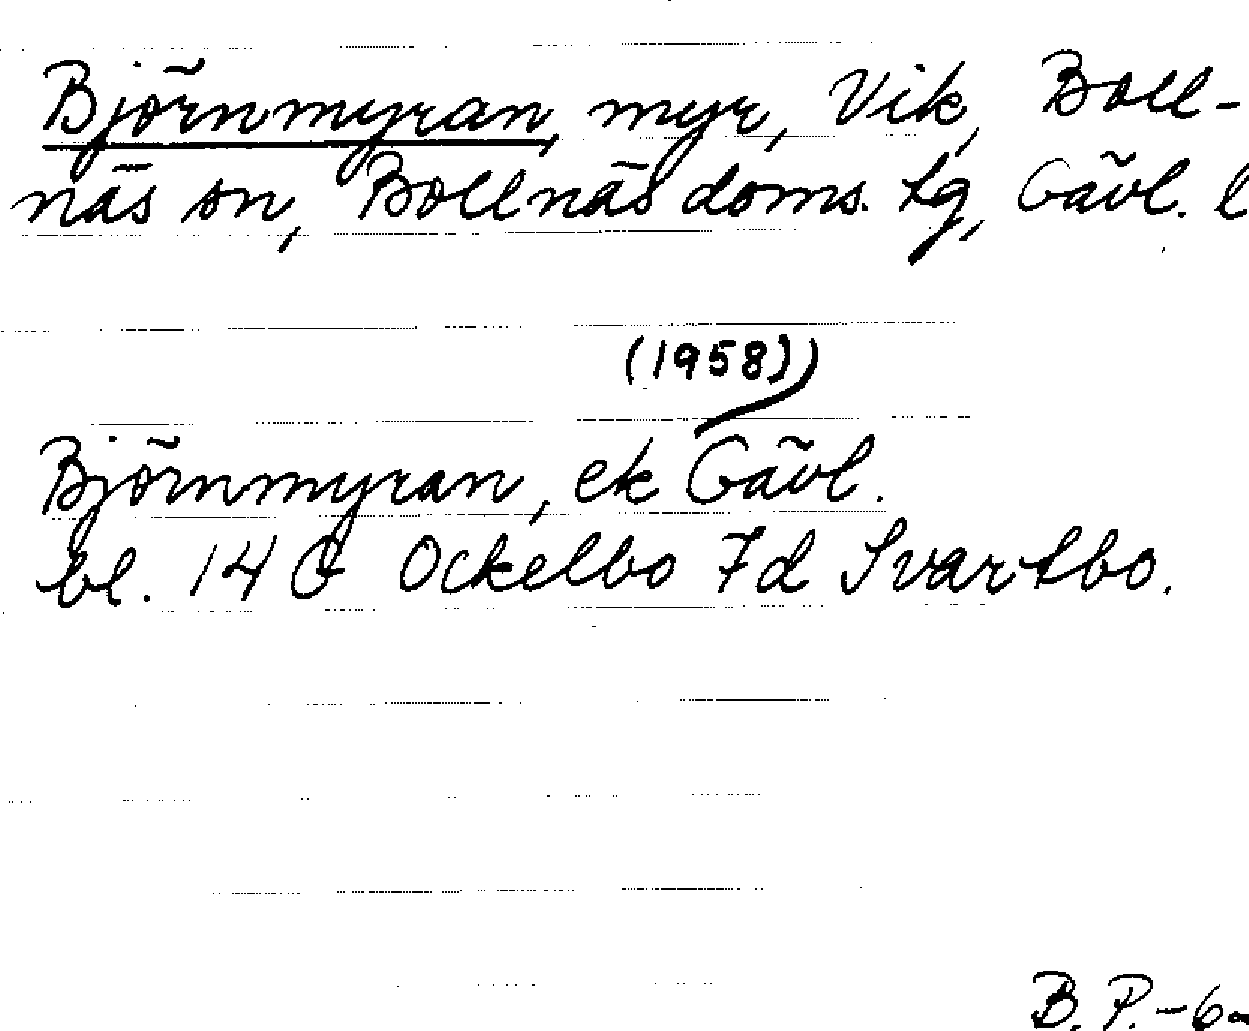 Björnmyran, myr, Vik, Boll-
näs sn, Bollnäs doms. tg, Gävl. l
(1958)
Björnmyran, ek Gävl.
bl. 14 G Ockelbo 7d Svartbo.
B. P. -6